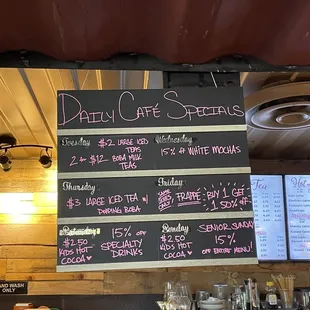 Daily Café Specials
Tuesday
$2 Large Iced
Teas
2 for $12 Boba Milk
Teas
Wednesday
15% off White Mochas
Thursday
$3 Large Iced Tea w/
Popping Boba
Friday
Frappé
Buy 1 Get
1 50% off
Saturday
$2.50
Kids Hot
Cocoa
15% off
Specialty
Drinks
Sunday
$2.50
Kids Hot
Cocoa
Senior Sunday
15%
off Entire Menu!
Hand Wash
Only
Tea